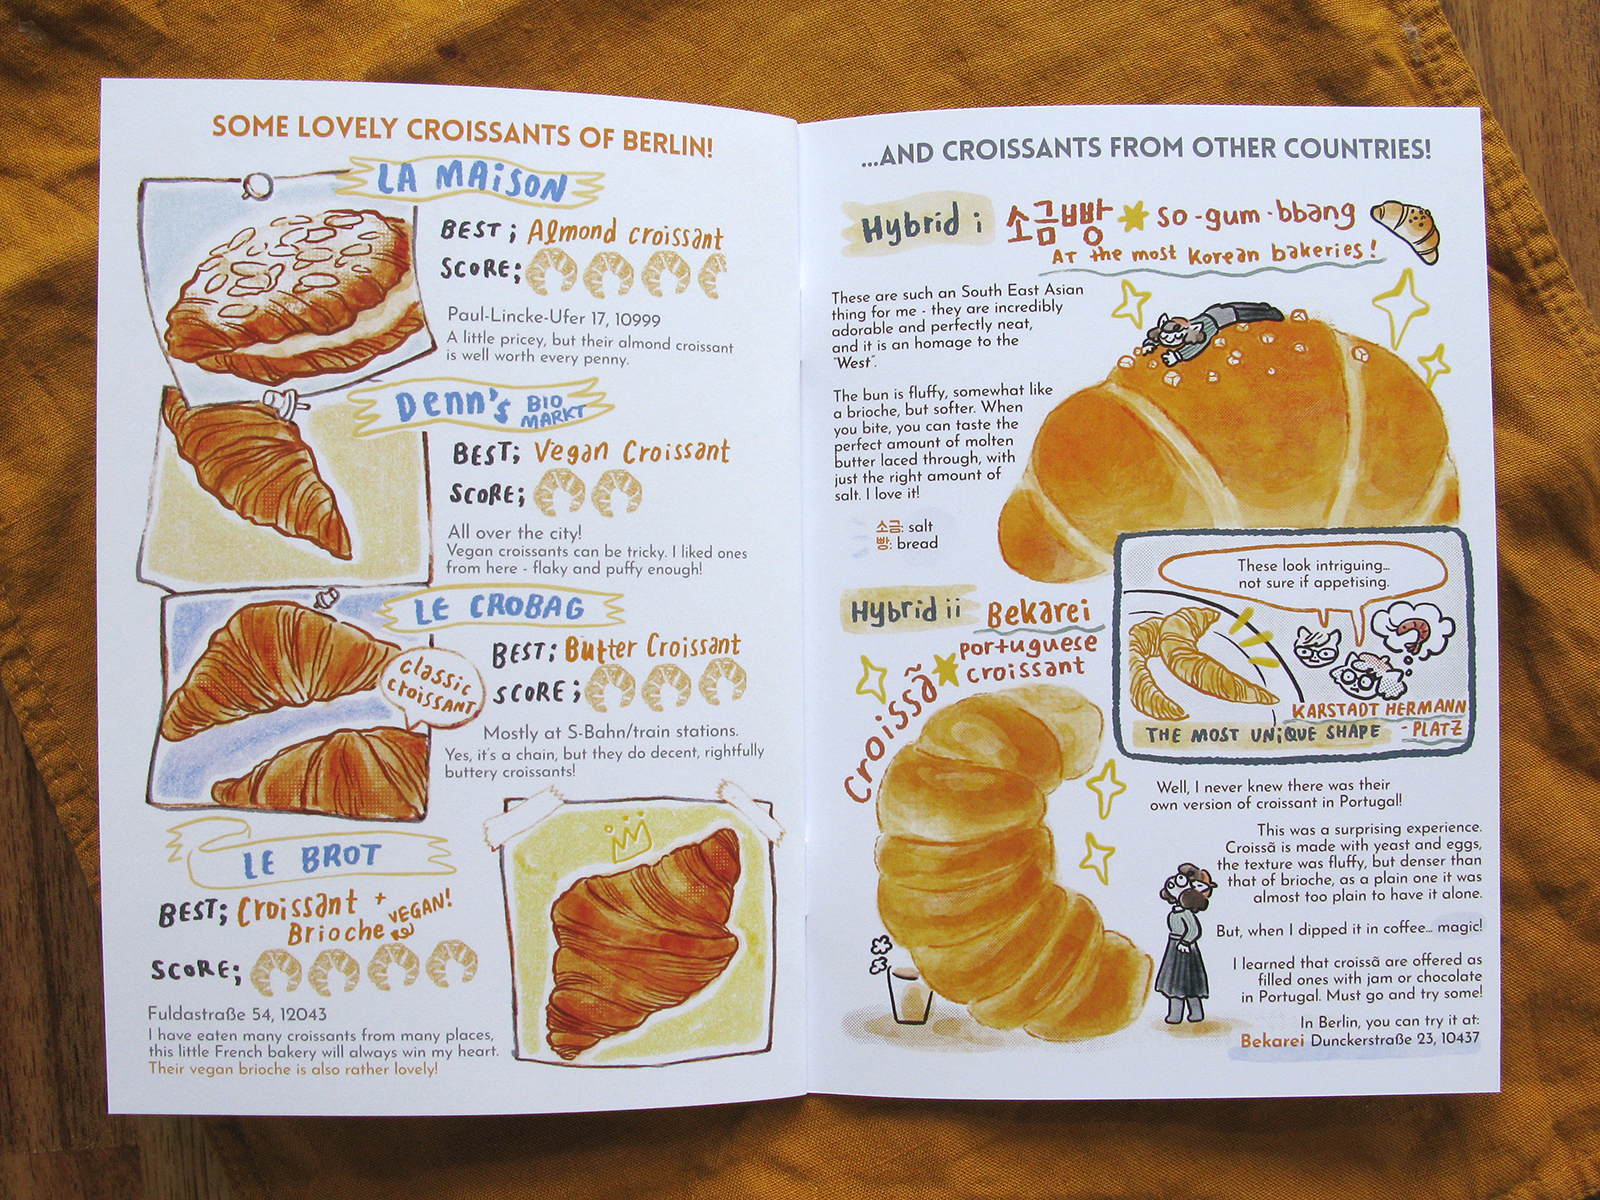 SOME LOVELY CROISSANTS OF BERLIN!
LA MAISON
BEST; Almond croissant
SCORE;
Paul-Lincke-Ufer 17, 10999
A little pricey, but their almond croissant
is well worth every penny.
Denn's BIO
MARKT
BEST; Vegan Croissant
SCORE;
All over the city!
Vegan croissants can be tricky. I liked ones
from here - flaky and puffy enough!
LE CROBAG
classic
croissant
BEST; Butter Croissant
SCORE;
Mostly at S-Bahn/train stations.
Yes, it's a chain, but they do decent, rightfully
buttery croissants!
LE BROT
BEST; Croissant +
Brioche VEGAN!
SCORE;
Fuldastraße 54, 12043
I have eaten many croissants from many places,
this little French bakery will always win my heart.
Their vegan brioche is also rather lovely!
...AND CROISSANTS FROM OTHER COUNTRIES!
Hybrid i 소금빵 so-gum-bbang
AT the most Korean bakeries!
These are such an South East Asian
thing for me - they are incredibly
adorable and perfectly neat,
and it is an homage to the
"West".
The bun is fluffy, somewhat like
a brioche, but softer. When
you bite, you can taste the
perfect amount of molten
butter laced through, with
just the right amount of
salt. I love it!
소금: salt
빵: bread
These look intriguing...
not sure if appetising.
KARSTADT HERMANN
-PLATZ
THE MOST UNiQUE SHAPE
Hybrid ii Bekarei
portuguese
croissant
Croissã
Well, I never knew there was their
own version of croissant in Portugal!
This was a surprising experience.
Croissã is made with yeast and eggs,
the texture was fluffy, but denser than
that of brioche, as a plain one it was
almost too plain to have it alone.
But, when I dipped it in coffee... magic!
I learned that croissã are offered as
filled ones with jam or chocolate
in Portugal. Must go and try some!
In Berlin, you can try it at:
Bekarei Dunckerstraße 23, 10437